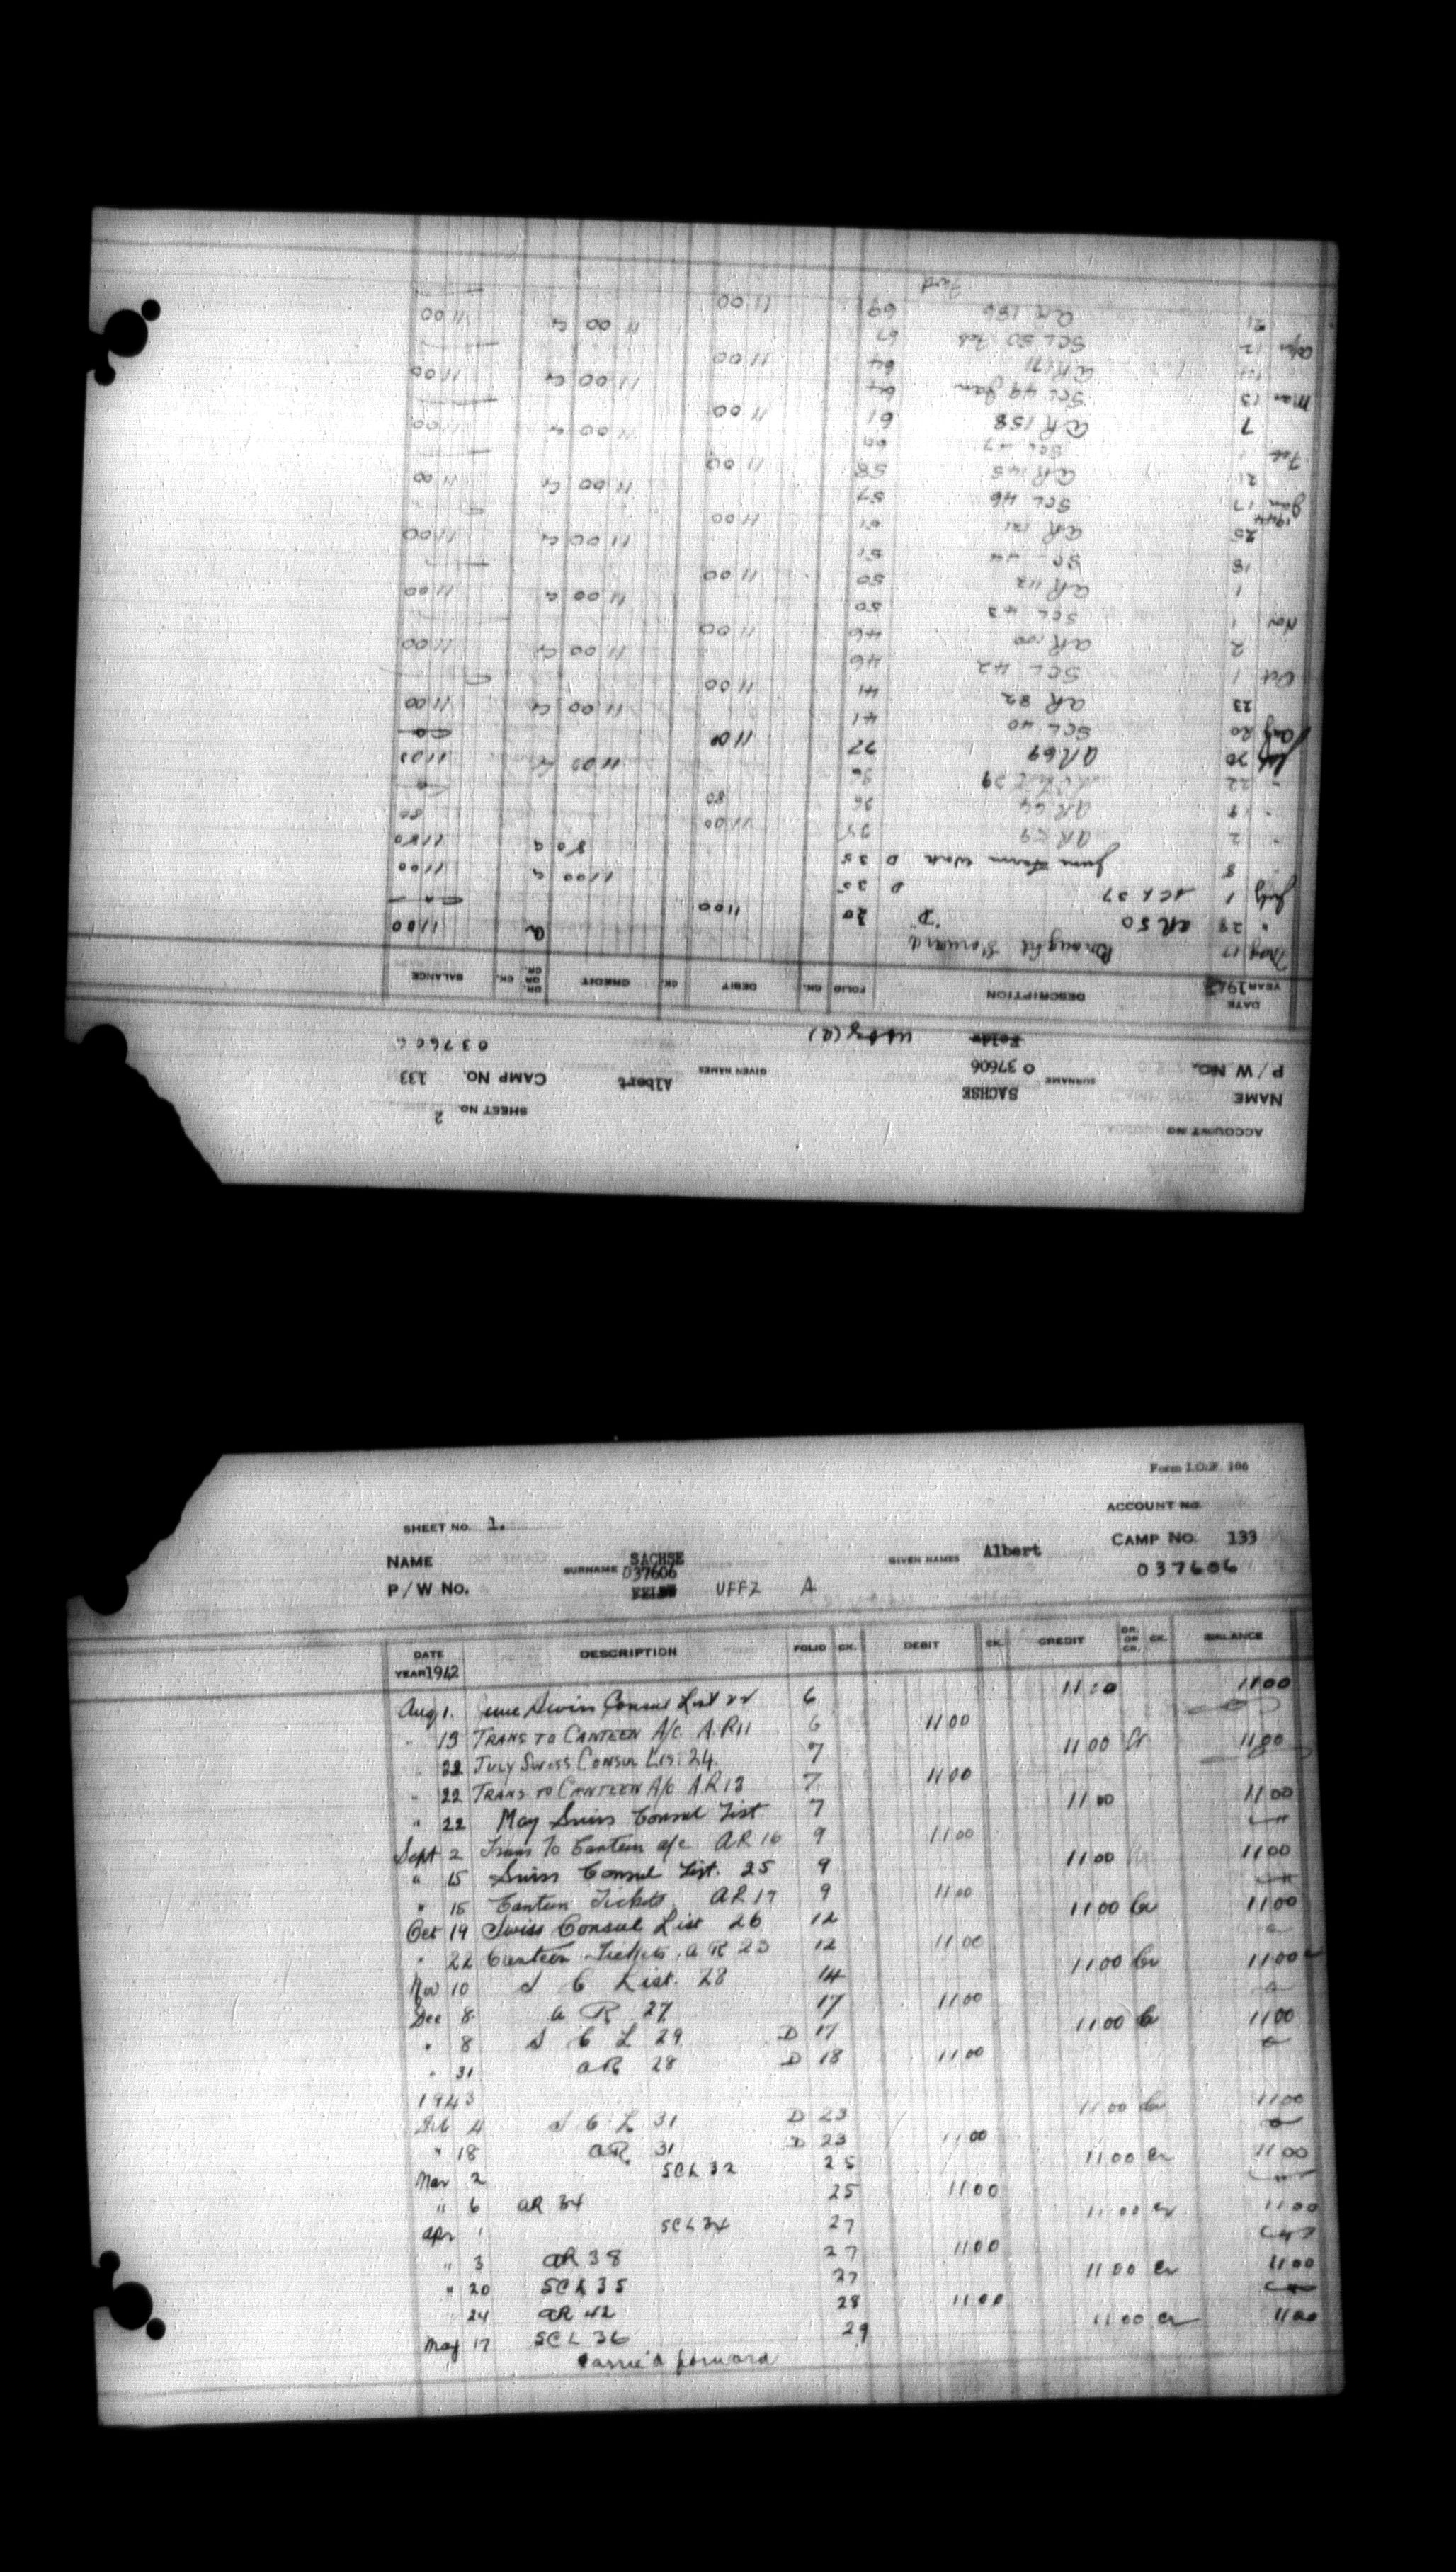 SHEET NO. 2
ACCOUNT NO.
NAME SURNAME SACHSE GIVEN NAMES Albert CAMP NO. 133
P/W NO. 037606 037606
DATE YEAR 194 DESCRIPTION FOLIO CK. DEBIT CK. CREDIT DR. OR CR. CK. BALANCE
May 17 Brought Forward Cr 1100
" 28 AR 50 "D" 30 1100
July 1 SCL 37 D 35 1100 Cr 1100
" 8 June Farm Work D 35 80 Cr 1180
" 2 AR 59 35 1100 80
" 19 AR 64 36 80
" 22 39 36 1100 Cr 1100
July 30 AR 69 37 1100
Aug 20 SCL 40 41 1100 Cr 1100
23 AR 82 41 1100
Oct 1 SCL 42 46 1100 Cr 1100
2 AR 100 46 1100
Nov 1 SCL 43 50 1100 Cr 1100
1 AR 112 50 1100
18 SC 44 51 1100 Cr 1100
25 AR 121 51 1100
1944
Jan 17 SCL 46 57 1100 Cr 1100
21 AR 145 58 1100
Feb 1 SCL 47 60 1100 Cr 1100
7 AR 158 61 1100
Mar 13 SCL 49 Jan 64 1100 Cr 1100
14 AR 171 64 1100
Apr 12 SCL 50 Feb 67 1100 Cr 1100
21 AR 186 69 1100
Fwd
Form I.O.P. 106
ACCOUNT NO.
SHEET NO. 1.
NAME SURNAME SACHSE GIVEN NAMES Albert CAMP NO. 133
P/W NO. 037606 UFFZ A 037606
DATE YEAR 1942 DESCRIPTION FOLIO CK. DEBIT CK. CREDIT DR. OR CR. CK. BALANCE
Aug 1. June Swiss Consul List 22 6 1100 1100
" 13 TRANS TO CANTEEN A/C A.R 11 6 1100
" 22 JULY SWISS CONSUL LIST 24. 7 1100 Cr 1100
" 22 TRANS TO CANTEEN A/C A.R 13 7 1100
" 22 May Swiss Consul List 7 1100 1100
Sept 2 Trans To Canteen a/c AR 16 9 1100
" 15 Swiss Consul List. 25 9 1100 1100
" 15 Canteen Tickets AR 17 9 1100
Oct 19 Swiss Consul List 26 12 1100 Cr 1100
" 22 Canteen Tickets AR 23 12 1100
Nov 10 S C List. 28 14 1100 Cr 1100
Dec 8 A R 27 17 1100
" 8 S C L 29 D 17 1100 Cr 1100
" 31 AR 28 D 18 1100
1943
Feb 4 S C L 31 D 23 1100 Cr 1100
" 18 AR 31 D 23 1100
Mar 2 SCL 32 25 1100 Cr 1100
" 6 AR 34 25 1100
Apr 1 SCL 34 27 1100 Cr 1100
" 3 AR 38 27 1100
" 20 SCL 35 27 1100 Cr 1100
24 AR 42 28 1100
May 17 SCL 36 29 1100 Cr 1100
Carrie'd forward